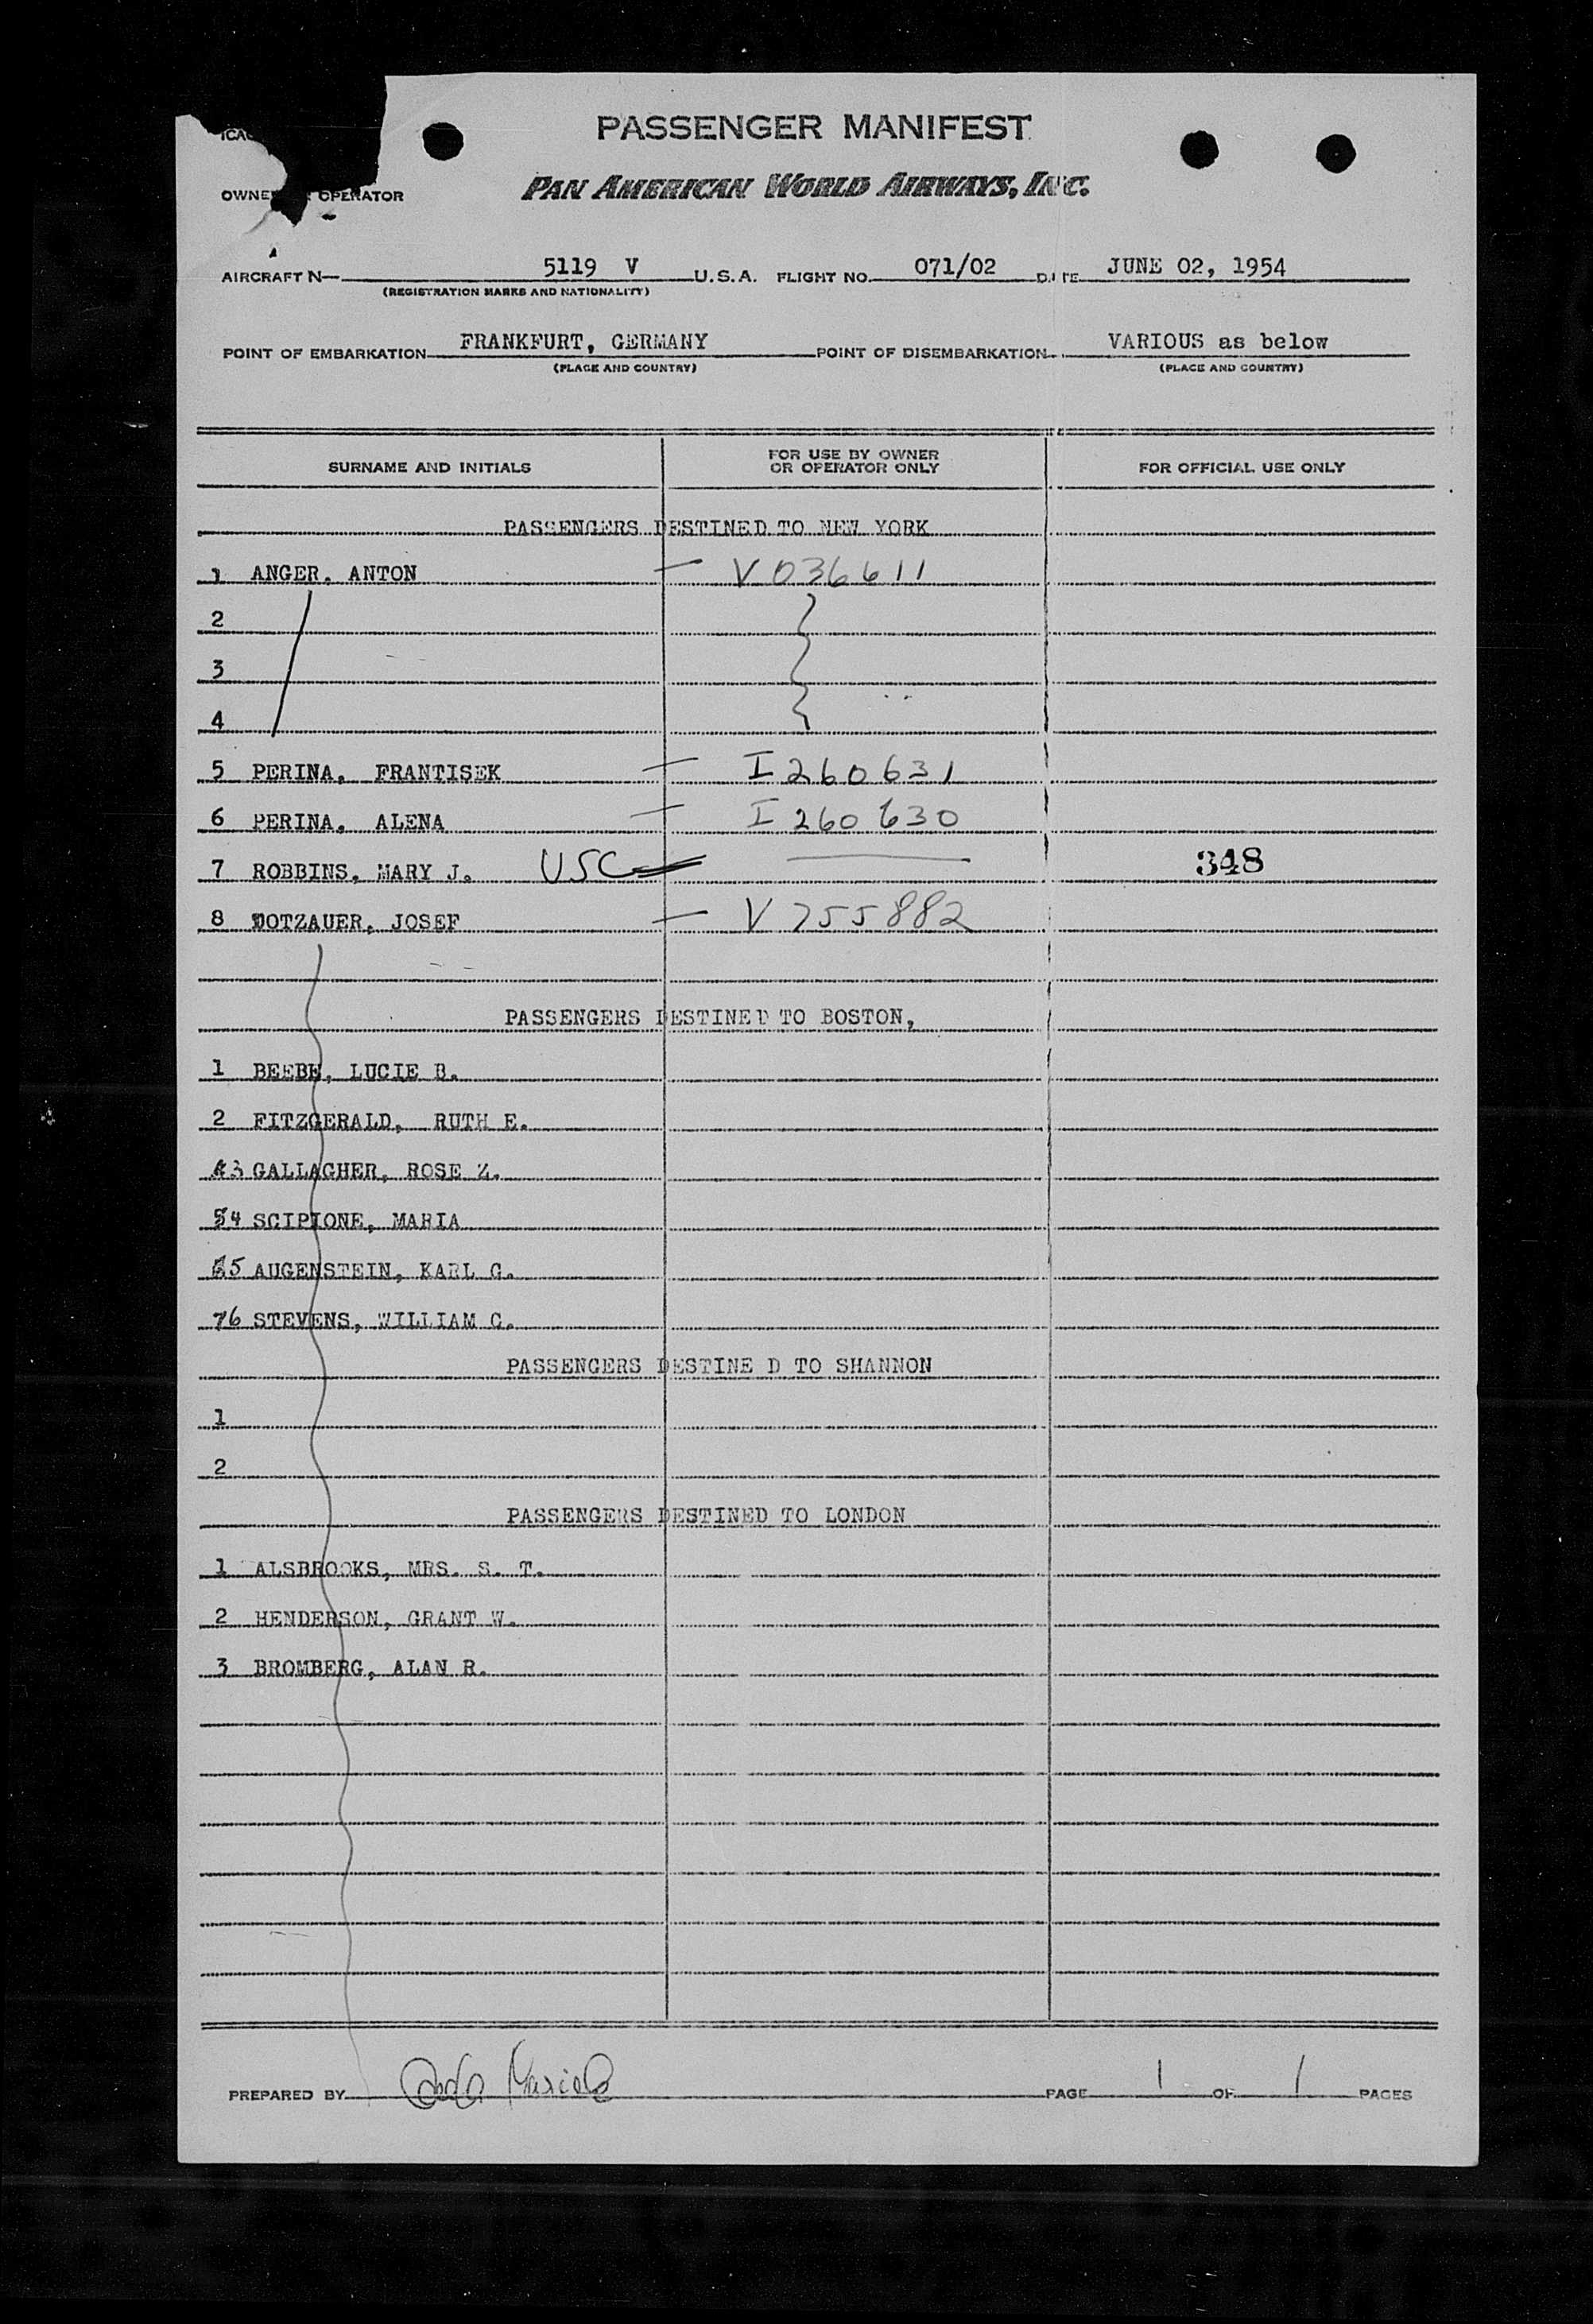 PASSENGER MANIFEST
OPERATOR
PAN AMERICAN WORLD AIRWAYS, INC.
AIRCRAFT N— 5119 V U.S.A. FLIGHT NO. 071/02 DATE JUNE 02, 1954
(REGISTRATION MARKS AND NATIONALITY)
POINT OF EMBARKATION FRANKFURT, GERMANY POINT OF DISEMBARKATION VARIOUS as below
(PLACE AND COUNTRY) (PLACE AND COUNTRY)
SURNAME AND INITIALS FOR USE BY OWNER OR OPERATOR ONLY FOR OFFICIAL USE ONLY
PASSENGERS DESTINED TO NEW YORK
1 ANGER, ANTON — V 036611
2
3
4
5 PERINA, FRANTISEK — I 260631
6 PERINA, ALENA — I 260630
7 ROBBINS, MARY J. USC — 348
8 DOTZAUER, JOSEF — V 755882
PASSENGERS DESTINED TO BOSTON,
1 BEEBE, LUCIE B.
2 FITZGERALD, RUTH E.
3 GALLAGHER, ROSE Z.
4 SCIPIONE, MARIA
5 AUGENSTEIN, KARL G.
6 STEVENS, WILLIAM C.
PASSENGERS DESTINE D TO SHANNON
1
2
PASSENGERS DESTINED TO LONDON
1 ALSBROOKS, MRS. S. T.
2 HENDERSON, GRANT W.
3 BROMBERG, ALAN R.
PREPARED BY PAGE 1 OF 1 PAGES